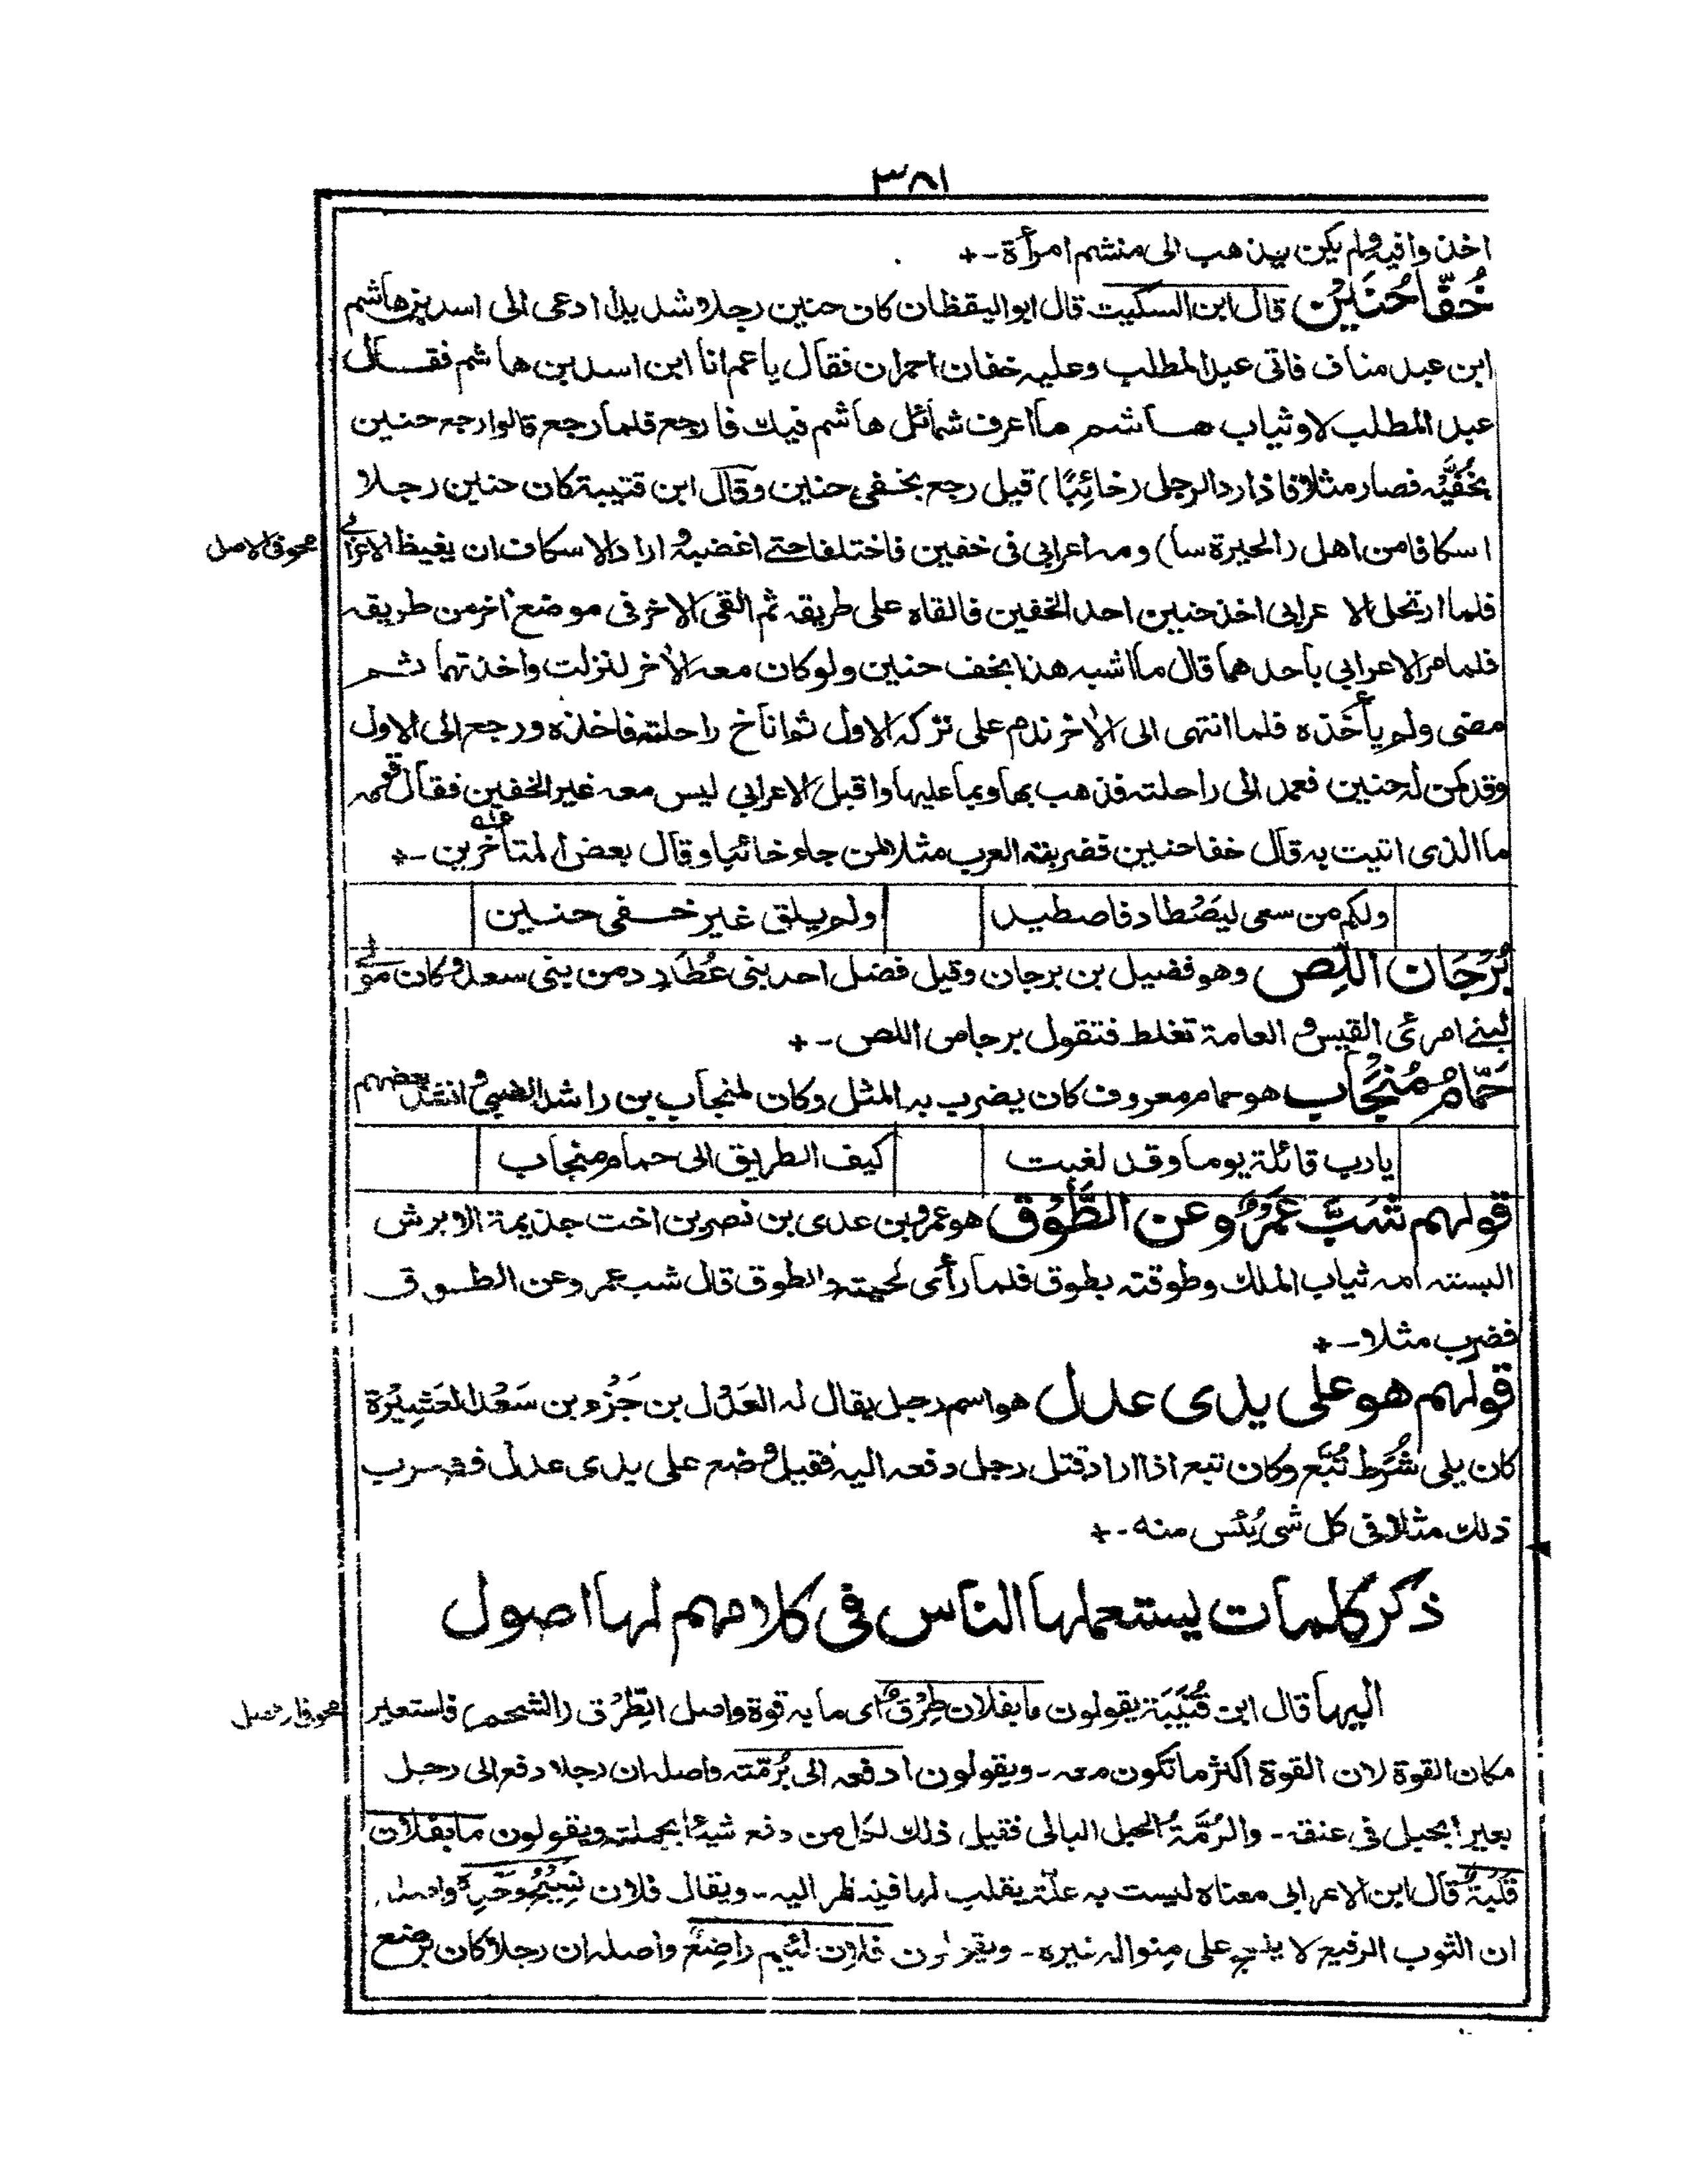 ٣٨١
اخذوا فيه ولم يكن يذهب الى منشم امرأة -+
خُفَّا حُنَيْن قال ابن السكيت قال ابو اليقظان كان حنين رجلا شديدا ادعى الى اسد بن هاشم
ابن عبد مناف فاتى عبد المطلب وعليه خفان احمران فقال يا عم انا ابن اسد بن هاشم فقال
عبد المطلب لا وثياب هاشم ما اعرف شمائل هاشم فيك فارجع فلما رجع قالوا رجع حنين
بخُفَّيْه فصار مثلا فاذا رد الرجل (خائِبًا) قيل رجع بخفي حنين وقال ابن قتيبة كان حنين رجلا
اسكافا من اهل (الحيرة سا) ومه اعرابى فى خفين فاختلفا حتے اغضبه و اراد الاسكاف ان يغيظ الاعرابے
محو فى الاصل
فلما ارتحل الا عرابى اخذ حنين احد الخفين فالقاه على طريقه ثم القى الاخر فى موضع اخر من طريقه
فلما مر الاعرابي باحدهما قال ما اشبه هذا بخف حنين ولو كان معه الأخر لنزلت واخذتهما ثم
مضى ولم يأخذه فلما انتهى الى الأخر ندم على تركه الاول ثم اناخ راحلته فاخذه ورجع الى الاول
وقد كمن له حنين فعمد الى راحلته فذهب بها وبما عليها واقبل الاعرابي ليس معه غير الخفين فقال قومه
ما الذى اتيت به قال خفا حنين فضربته العرب مثلا لمن جاء خائبا وقال بعض المتأخرين -+
ولكم من سعى ليَصْطاد فاصطيد ولم يلق غير خفى حنين
بُرْجَان اللِّص وهو فضيل بن برجان وقيل فضل احد بنى عُطَارِد من بنى سعد وكان مولے
لبنے امرئ القيس و العامة تغلط فتقول برجاص اللص -+
حَمَّامُ مُنْجَاب هو حمام معروف كان يضرب به المثل وكان لمنجاب بن راشد الضبي و انشد بعضهم
يارب قائلة يوما وقد لغبت كيف الطريق الى حمام منجاب
قولهم شَبَّ عَمْرٌو عن الطَّوْق هو عمرو بن عدى بن نصر بن اخت جذيمة الابرش
البسته امه ثياب الملك وطوقته بطوق فلما رأى لحيته والطوق قال شب عمرو عن الطوق
فضرب مثلا -+
قولهم هو على يدى عدل هو اسم رجل يقال له العَدْل بن جَزْء بن سَعْد العَشِيْرة
كان يلى شُرَط تُبَّع وكان تبع اذا اراد قتل رجل دفعه اليه فقيل وضع على يدى عدل فضرب
ذلك مثلا فى كل شى يُئس منه -+
ذكر كلمات يستعملها الناس فى كلامهم لها اصول
اليها قال ابن قُتَيْبَة يقولون ما بفلان طِرْقٌ اى ما به قوة واصل الطِّرْق (الشحم) فاستعير
مكان القوة لان القوة اكثر ما تكون معه - ويقولون ادفعه الى برُمّته واصله ان رجلا دفع الى رجل
بعيرا بحبل فى عنقه - والرُمَّةُ الحبل البالى فقيل ذلك لكل من دفع شيئا بجملته ويقولون ما بفلان
قَلَبَةٌ قال ابن الاعرابى معناه ليست به علة يقلب لها فينظر اليه - ويقال فلان نَسِيْجُ وَحْدِه واصله
ان الثوب الرفيع لا ينسج على منواله غيره - ويقولون فلان لئيم راضِعٌ واصله ان رجلا كان يرضع